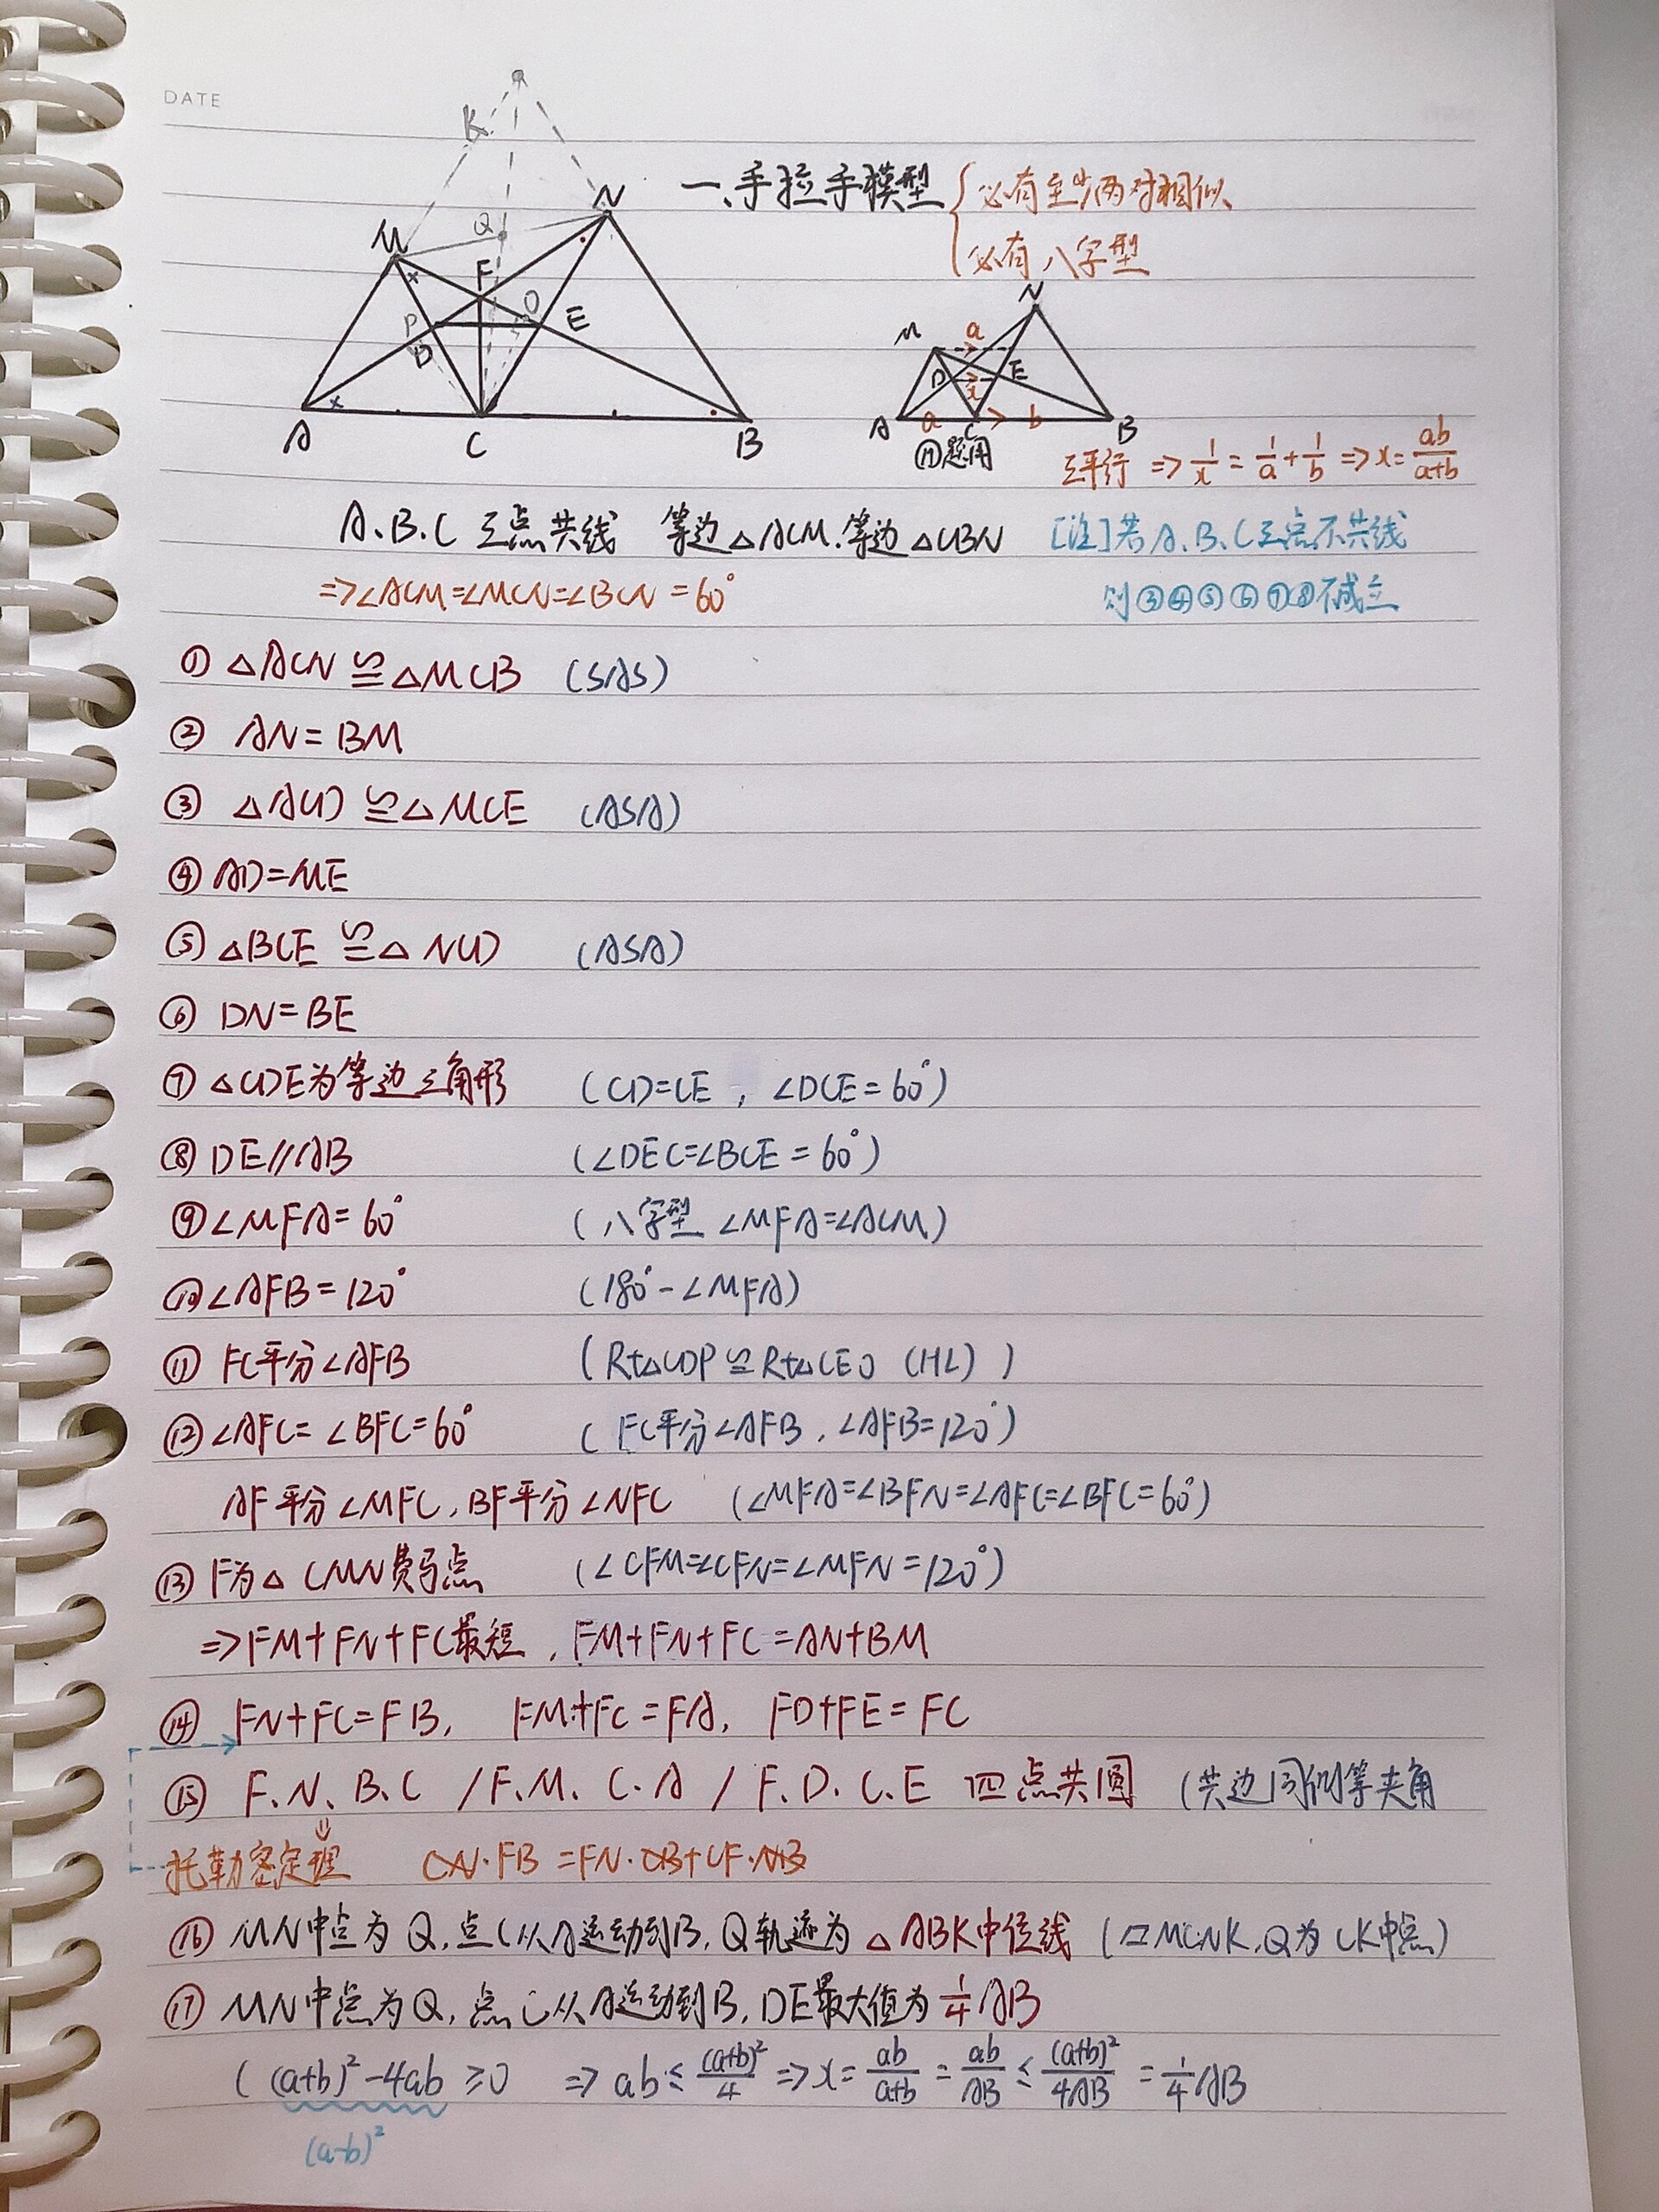 DATE
K
N
一、手拉手模型 { 必有至少两对相似
必有八字型
M Q
F
P D O E
A C B
N
M a
D x E
A a C b B
⑰题用
三平行 => 1/x = 1/a + 1/b => x = ab/(a+b)
A.B.C 三点共线 等边△ACM.等边△CBN [注]若A.B.C三点不共线
=>∠ACM=∠MCN=∠BCN=60° 则③④⑤⑥⑦⑧不成立
① △ACN≌△MCB (SAS)
② AN=BM
③ △ACD≌△MCE (ASA)
④ AD=ME
⑤ △BCE≌△NCD (ASA)
⑥ DN=BE
⑦ △CDE为等边三角形 (CD=CE, ∠DCE=60°)
⑧ DE//AB (∠DEC=∠BCE=60°)
⑨ ∠MFA=60° (八字型 ∠MFA=∠ACM)
⑩ ∠AFB=120° (180°-∠MFA)
⑪ FC平分∠AFB (Rt△CDP≌Rt△CEO (HL))
⑫ ∠AFC=∠BFC=60° (FC平分∠AFB, ∠AFB=120°)
AF平分∠MFC, BF平分∠NFC (∠MFA=∠BFN=∠AFC=∠BFC=60°)
⑬ F为△CMN费马点 (∠CFM=∠CFN=∠MFN=120°)
=>FM+FN+FC最短, FM+FN+FC=AN+BM
⑭ FN+FC=FB, FM+FC=FA, FD+FE=FC
⑮ F.N.B.C / F.M.C.A / F.D.C.E 四点共圆 (共边同侧等夹角
托勒密定理 CN·FB=FN·CB+CF·NB
⑯ MN中点为Q,点C从A运动到B,Q轨迹为△ABK中位线 (▱MCNK,Q为CK中点)
⑰ MN中点为Q,点C从A运动到B,DE最大值为1/4AB
((a+b)²-4ab≥0 => ab≤(a+b)²/4 => x=ab/(a+b)=ab/AB≤(a+b)²/4AB=1/4AB
(a-b)²